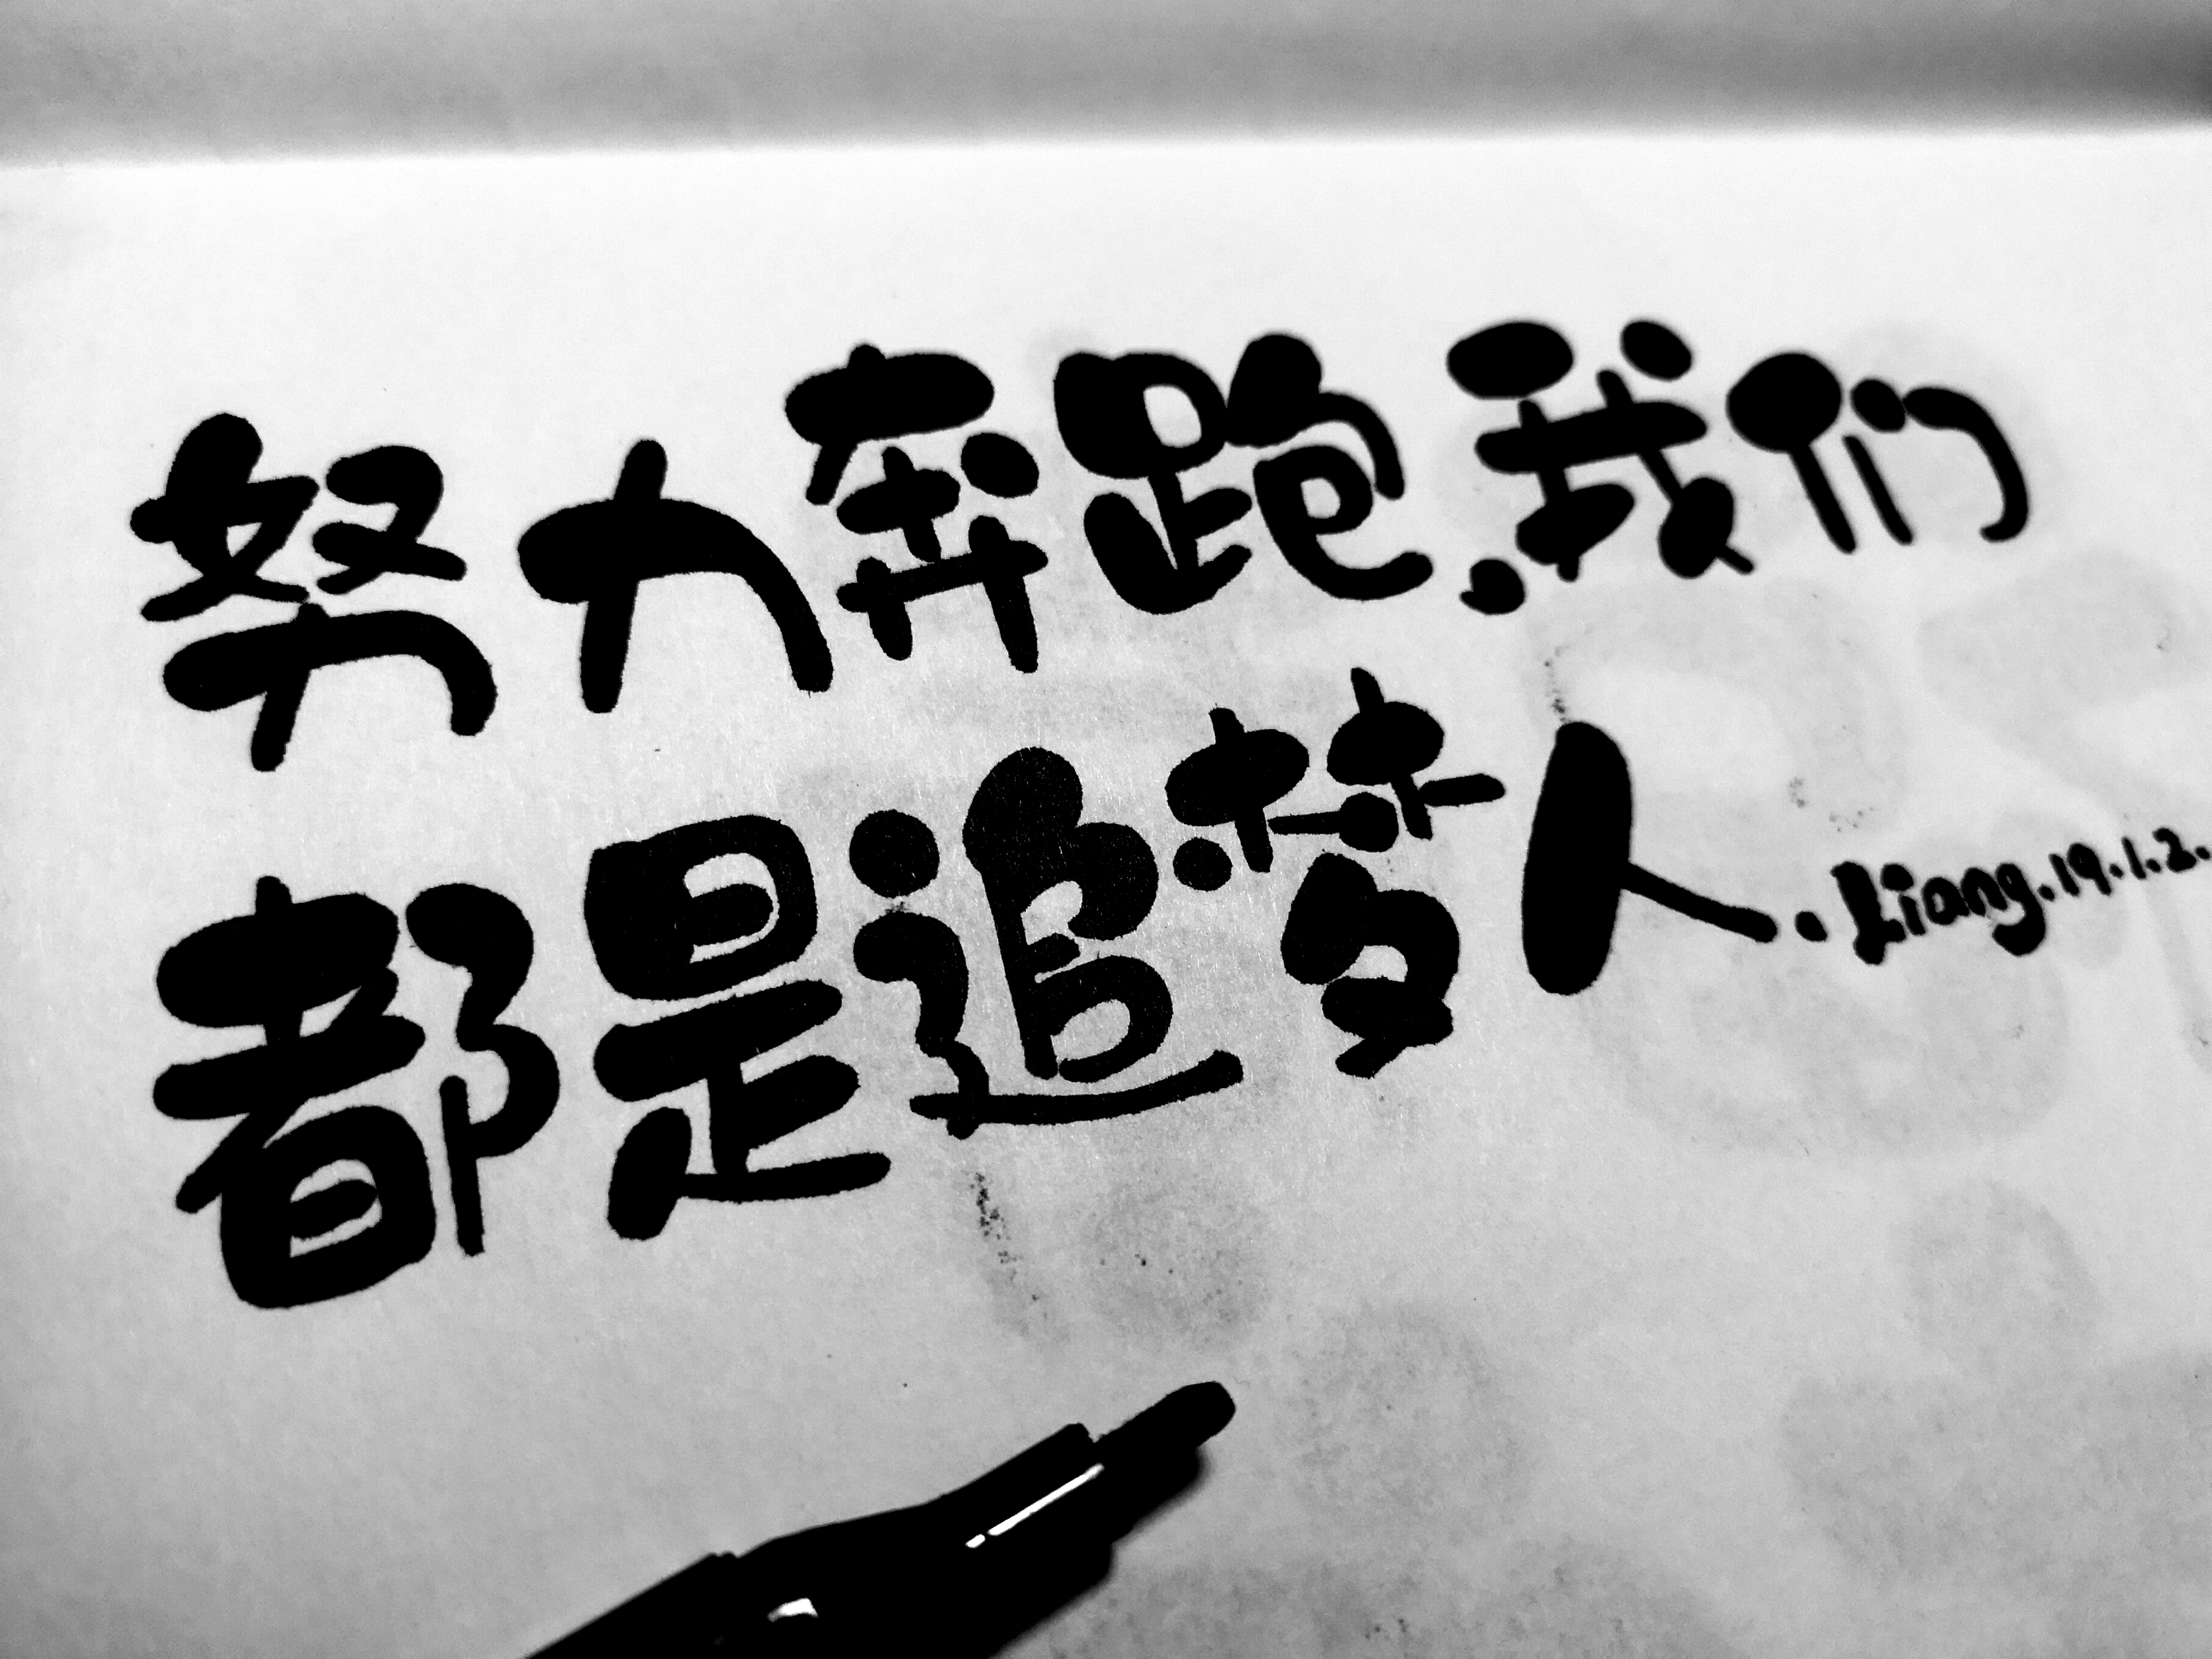 努力奔跑.我们
都是追梦人.Liang.19.1.2.